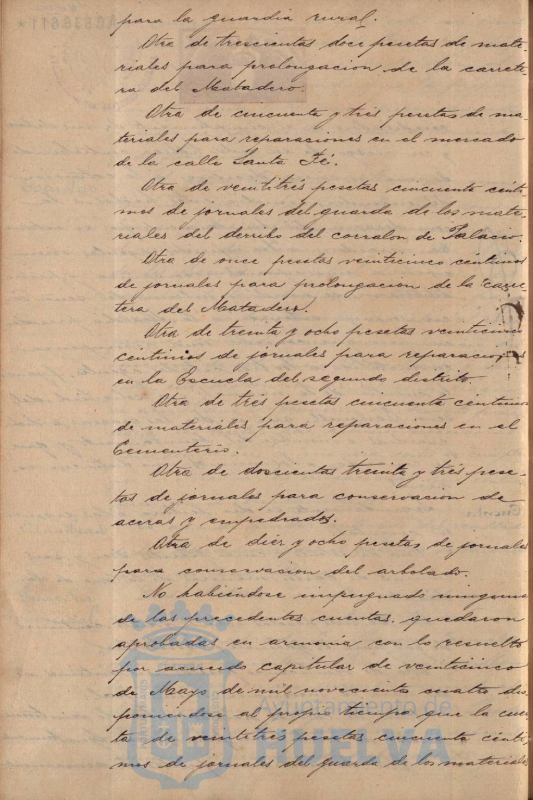 para la guardia rural.
Otra de trescientas doce pesetas de mate-
riales para prolongacion de la carrete-
ra del Matadero.
Otra de cincuenta y tres pesetas de ma-
teriales para reparaciones en el mercado
de la calle Santa Fé.
Otra de veintitrés pesetas cincuenta cénti-
mos de jornales del guarda de los mate-
riales del derribo del corralon de Palacio.
Otra de once pesetas veinticinco céntimos
de jornales para prolongacion de la carre-
tera del Matadero.
Otra de treinta y ocho pesetas veinticinco
céntimos de jornales para reparaciones
en la Escuela del segundo distrito.
Otra de tres pesetas cincuenta céntimos
de materiales para reparaciones en el
Cementerio.
Otra de doscientas treinta y tres pese-
tas de jornales para conservacion de
aceras y empedrados.
Otra de diez y ocho pesetas de jornales
para conservacion del arbolado.
No habiéndose impugnado ninguna
de las precedentes cuentas, quedaron
aprobadas en armonía con lo resuelto
por acuerdo capitular de veinticinco
de Mayo de mil novecientos cuatro dis-
poniéndose al propio tiempo que la cuen-
ta de veintitres pesetas cincuenta cénti-
mos de jornales del guarda de los materiales
Ayuntamiento de
HUELVA